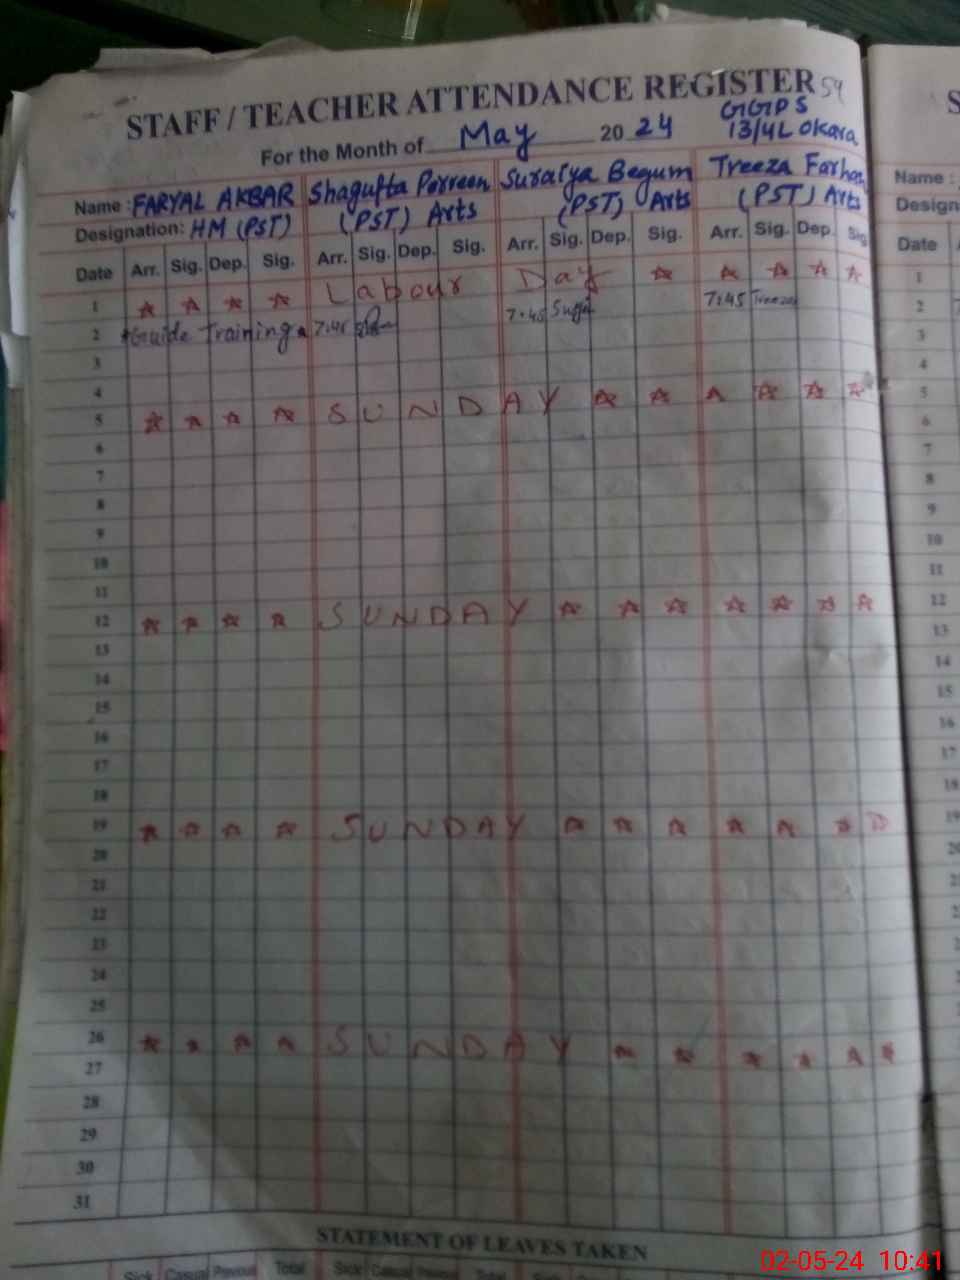 STAFF / TEACHER ATTENDANCE REGISTER 54
GGPS
For the Month of May 20 24 13/4L Okara
Name : FARYAL AKBAR Shagufta Perveen Suraiya Begum Treeza Farhan
Designation: HM (PST) (PST) Arts (PST) Arts (PST) Arts
Date Arr. Sig. Dep. Sig. Arr. Sig. Dep. Sig. Arr. Sig. Dep. Sig. Arr. Sig. Dep. Sig.
1 ☆ ☆ ☆ ☆ Labour Day ☆ ☆ ☆ ☆ ☆
2 Guide Training 7:45 7:45 7:45 Treeza
3
4
5 ☆ ☆ ☆ ☆ SUNDAY ☆ ☆ ☆ ☆ ☆ ☆
6
7
8
9
10
11
12 ☆ ☆ ☆ ☆ SUNDAY ☆ ☆ ☆ ☆ ☆ ☆ ☆
13
14
15
16
17
18
19 ☆ ☆ ☆ ☆ SUNDAY ☆ ☆ ☆ ☆ ☆ ☆ ☆
20
21
22
23
24
25
26 ☆ ☆ ☆ ☆ SUNDAY ☆ ☆ ☆ ☆ ☆ ☆
27
28
29
30
31
STATEMENT OF LEAVES TAKEN
Sick Casual Total Sick Casual Total
S
Name :
Design
Date
1
2
3
4
5
6
7
8
9
10
11
12
13
14
15
16
17
18
19
20
02-05-24 10:41